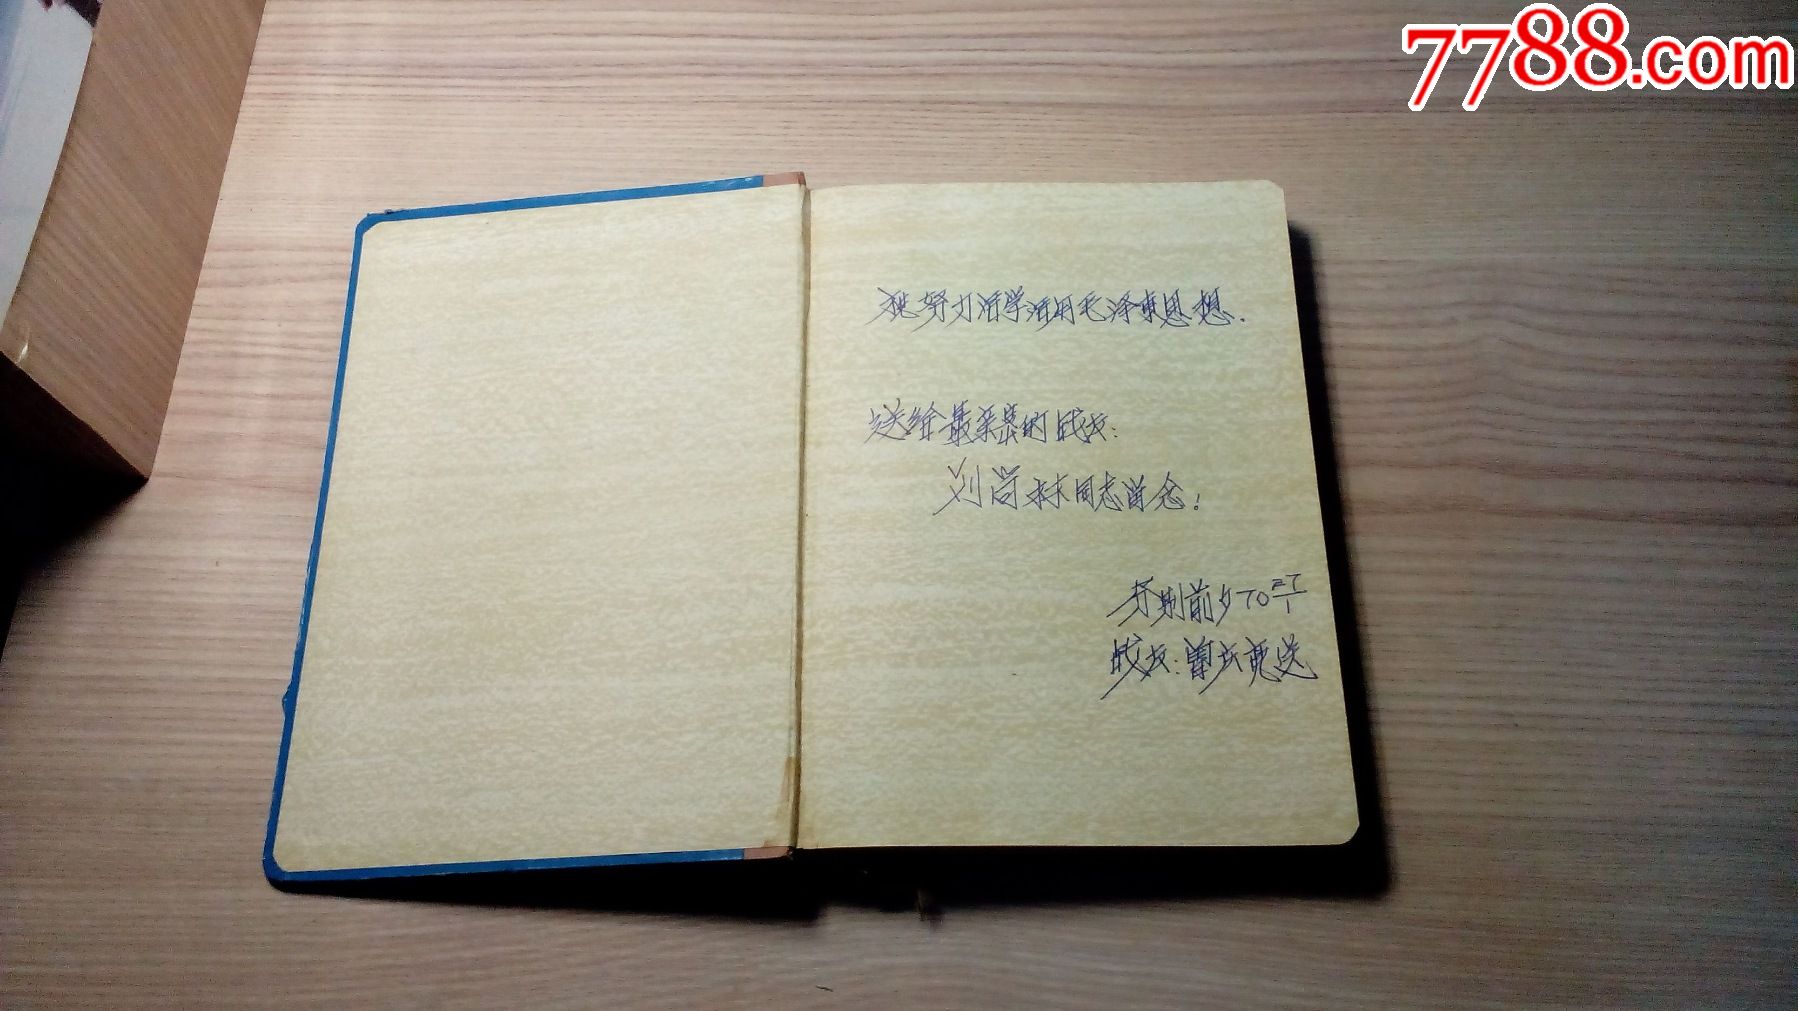 7788.com
努力活学活用毛泽东思想.
送给最亲密的战友:
刘尚林同志留念!
分别前夕70
战友: 送